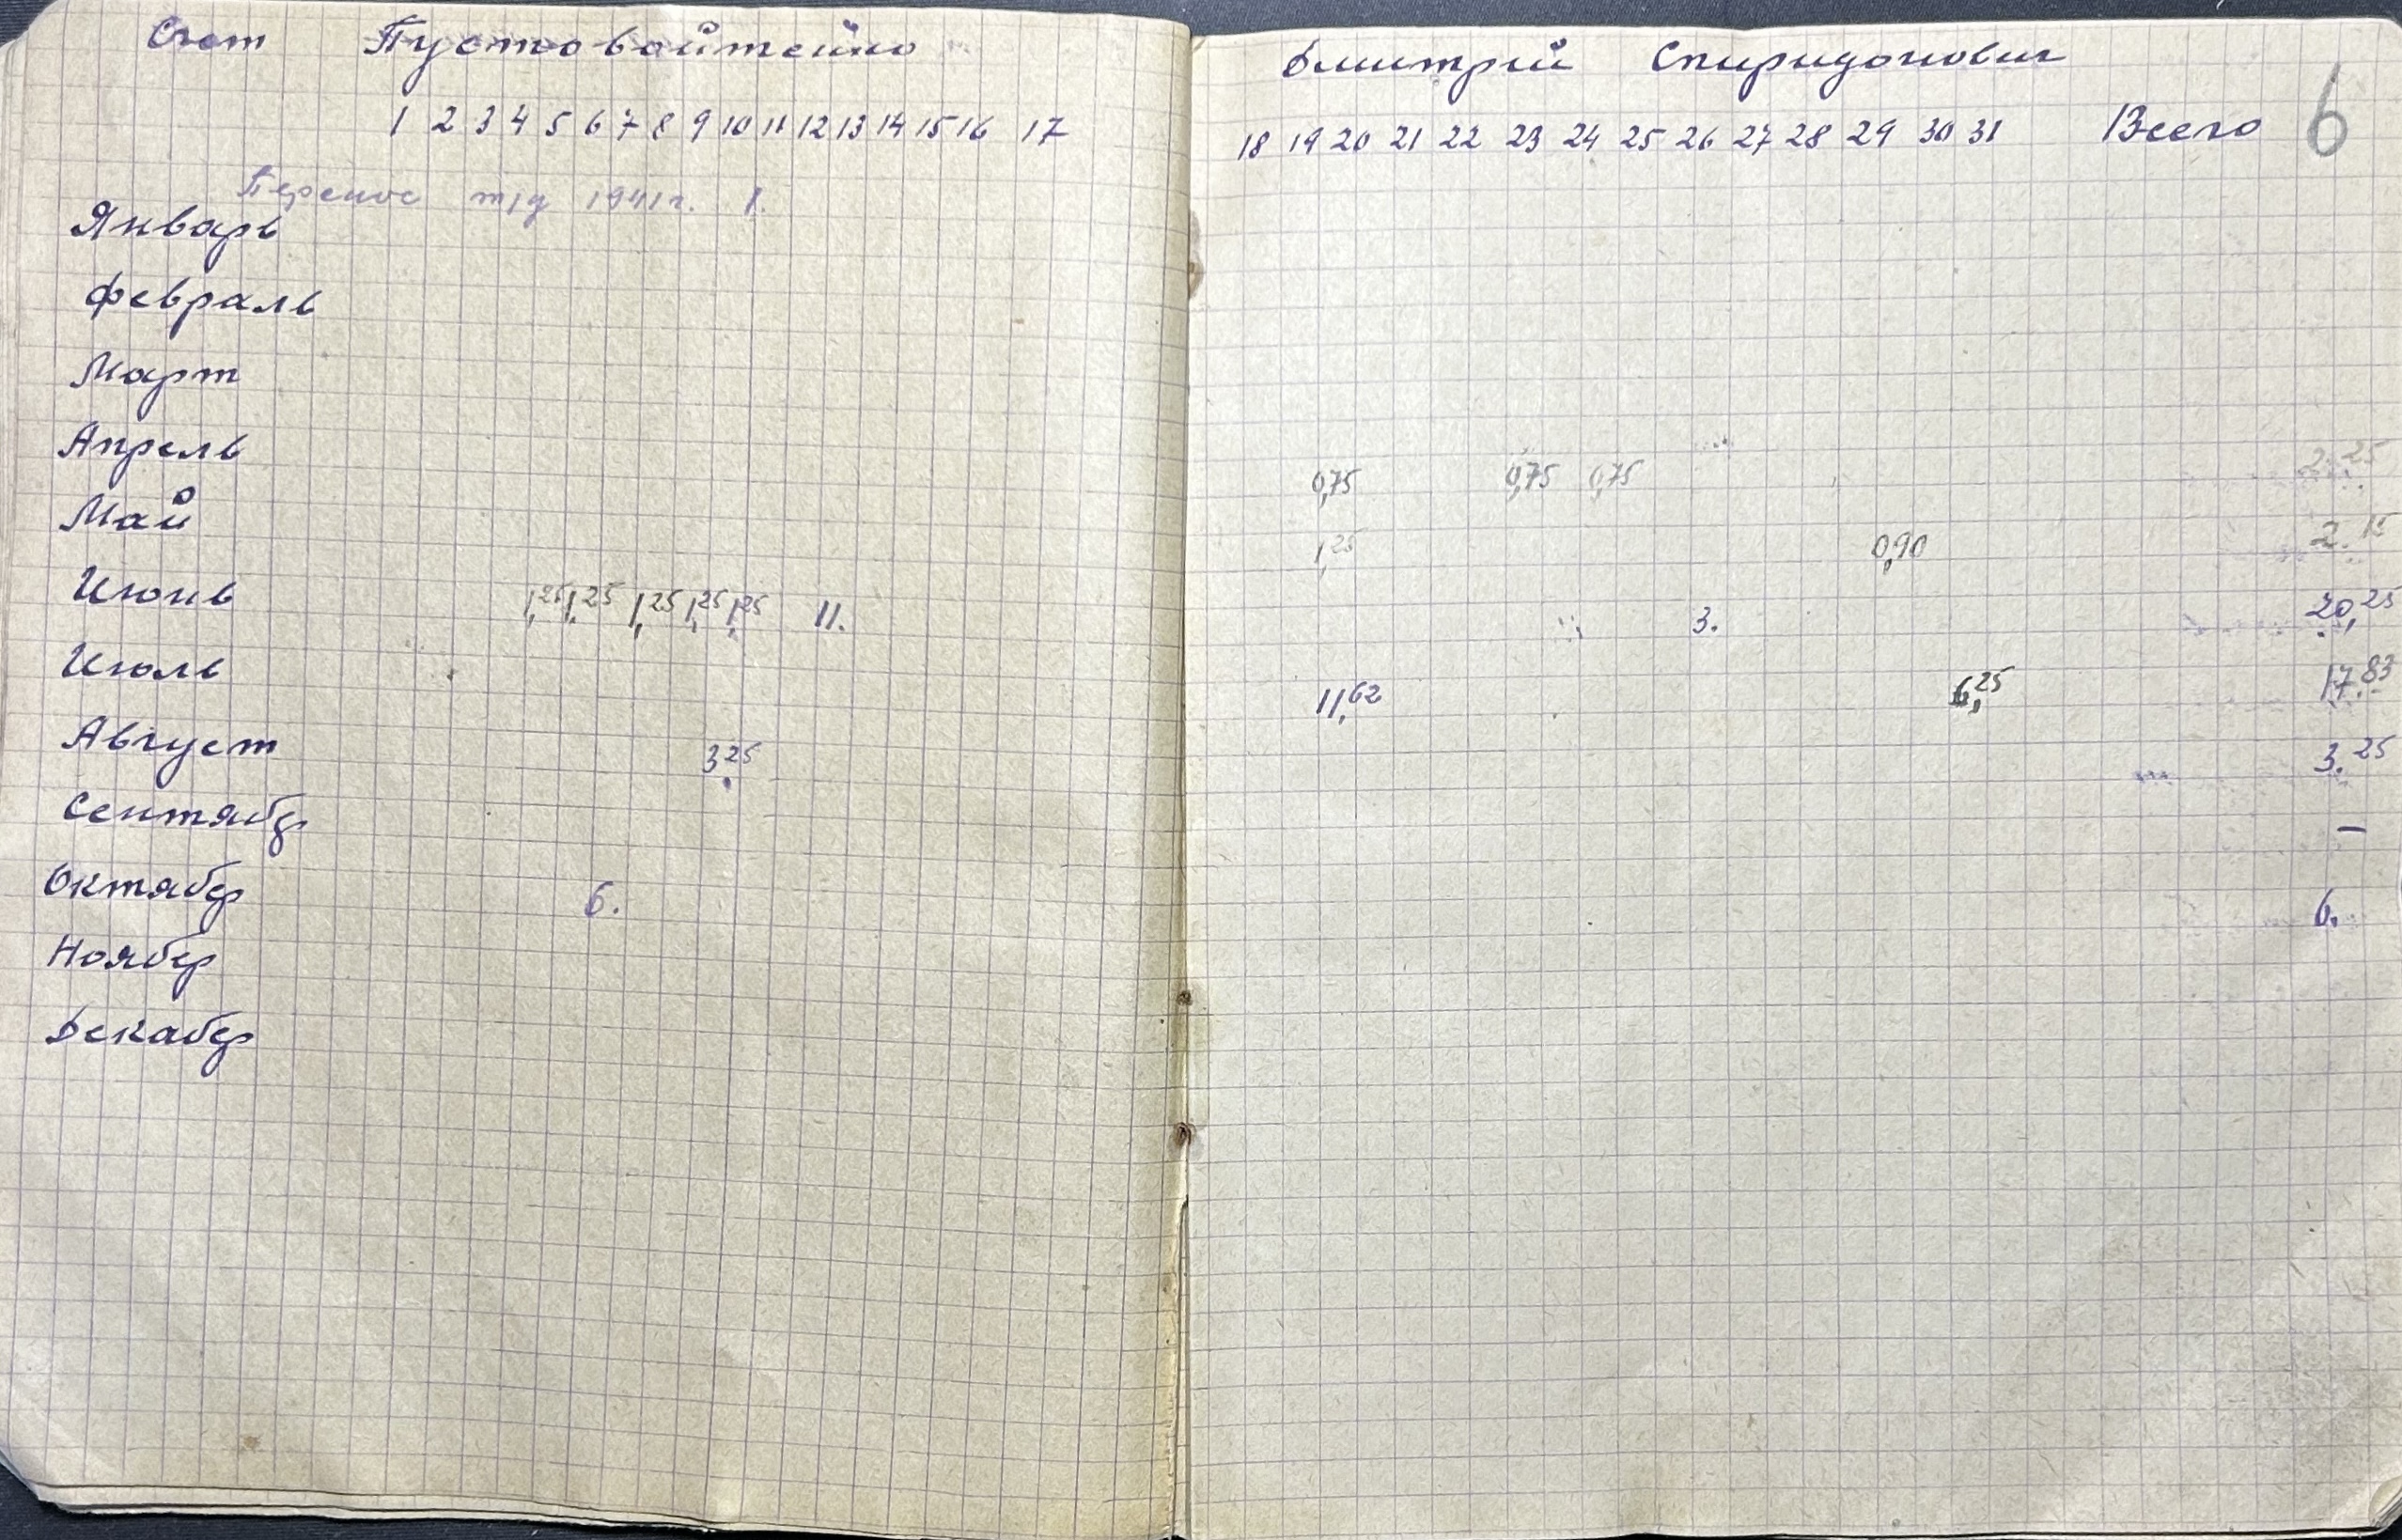 Счет Пустовойтенко Дмитрий Спиридонович
1 2 3 4 5 6 7 8 9 10 11 12 13 14 15 16 17 18 19 20 21 22 23 24 25 26 27 28 29 30 31 Всего 6
Перенос т/д 1941г. 1.
Январь
Февраль
Март
Апрель 0,75 0,75 0,75 2.25
Май 1,25 0,90 2.15
Июнь 1,25 1,25 1,25 1,25 1,25 11. 3. 20,25
Июль 11,62 6,25 17.83
Август 3.25 3.25
Сентябр –
Октябр 6. 6.
Ноябр
Декабр